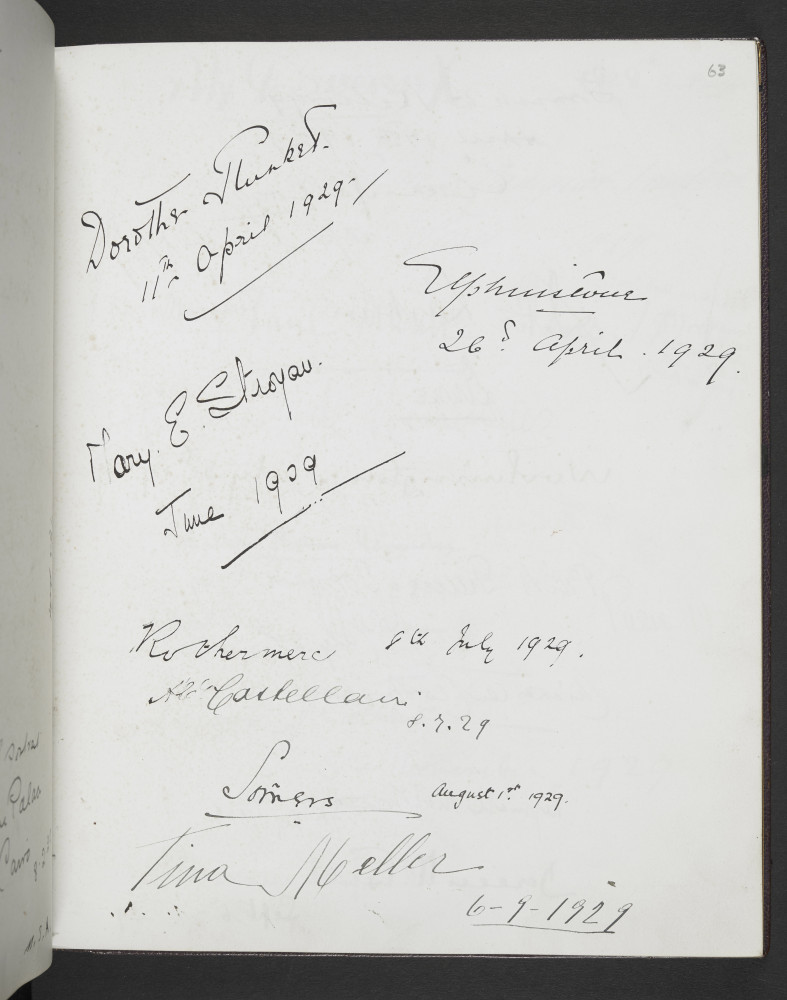 63
Dorothe Plunket.
11th April 1929
Elphinstone
26th April. 1929.
Mary. E. Stroyan.
June 1929
Rothermere 8th July 1929.
Castellani
8.7.29
Somers August 1st 1929.
Tina Meller
6-9-1929